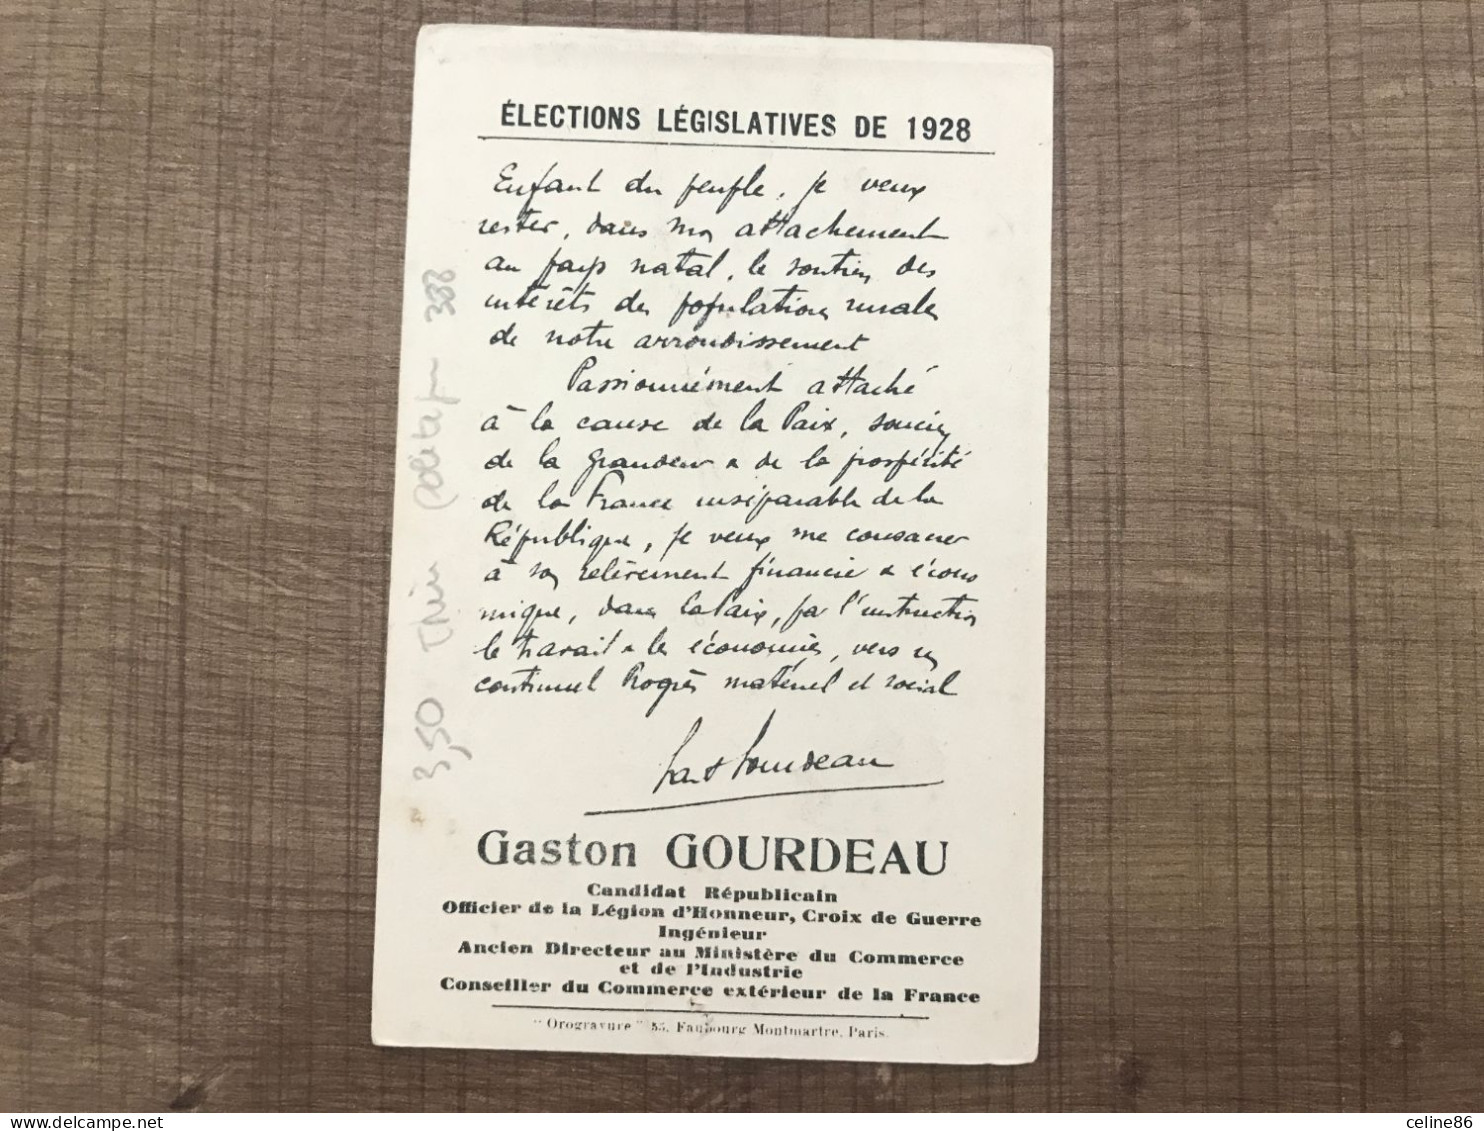 ÉLECTIONS LÉGISLATIVES DE 1928
Enfant du peuple, je veux
rester, dans mon attachement
au pays natal, le soutien des
intérêts des populations rurales
de notre arrondissement
Passionnément attaché
à la cause de la Paix, soucieux
de la grandeur & de la prospérité
de la France inséparable de la
République, je veux me consacrer
à son relèvement financier & écono
mique, dans la Paix, par l'instruction
le travail & les économies, vers un
continuel Progrès matériel et social
Gast Gourdeau
Gaston GOURDEAU
Candidat Républicain
Officier de la Légion d'Honneur, Croix de Guerre
Ingénieur
Ancien Directeur au Ministère du Commerce
et de l'Industrie
Conseiller du Commerce extérieur de la France
"Orogravure" 55, Faubourg Montmartre, Paris.
3,50 388
delcampe.net
celine86